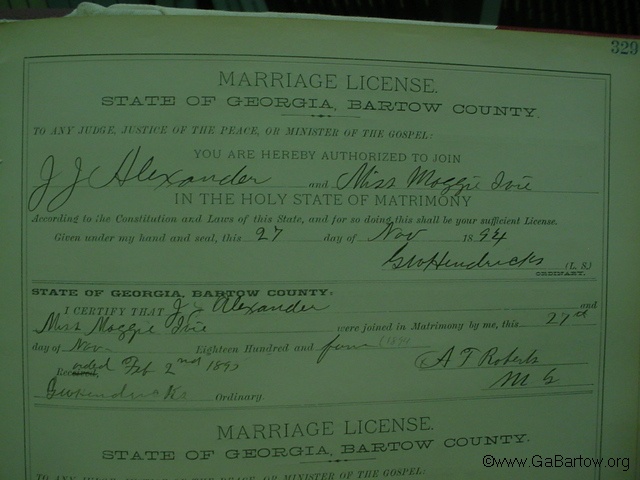 329
MARRIAGE LICENSE.
STATE OF GEORGIA, BARTOW COUNTY.
TO ANY JUDGE, JUSTICE OF THE PEACE, OR MINISTER OF THE GOSPEL:
YOU ARE HEREBY AUTHORIZED TO JOIN
J J Alexander and Miss Maggie Ivie
IN THE HOLY STATE OF MATRIMONY
According to the Constitution and Laws of this State, and for so doing this shall be your sufficient License.
Given under my hand and seal, this 27 day of Nov 1894
GW Hendricks (L. S.)
ORDINARY.
STATE OF GEORGIA, BARTOW COUNTY.
I CERTIFY THAT J J Alexander and
Miss Maggie Ivie were joined in Matrimony by me, this 27th
day of Nov Eighteen Hundred and four (1894
Recorded Feb 2nd 1895 A T Roberts
M G
GW Hendricks Ordinary.
MARRIAGE LICENSE.
STATE OF GEORGIA, BARTOW COUNTY.
TO ANY JUDGE, JUSTICE OF THE PEACE, OR MINISTER OF THE GOSPEL:
©www.GaBartow.org